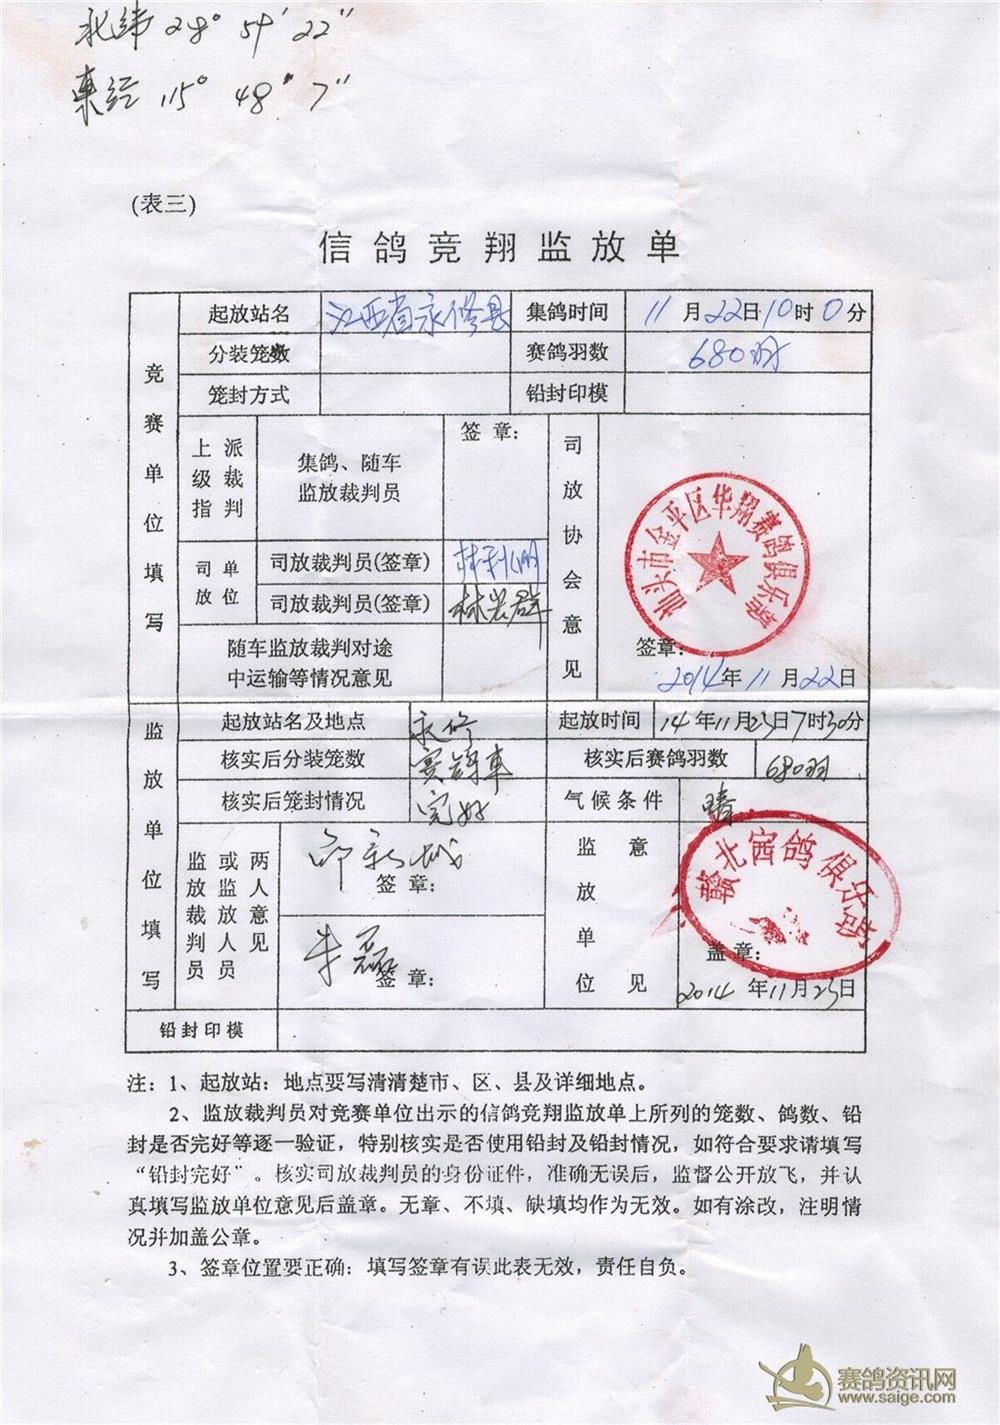 北纬 28° 59′ 22″
东经 115° 48″ 7″
(表三)
信鸽竞翔监放单
竞赛单位填写
起放站名 江西省永修县 集鸽时间 11月22日10时0分
分装笼数 赛鸽羽数 680羽
笼封方式 铅封印模
上级指派裁判 集鸽、随车监放裁判员 签章:
司放单位 司放裁判员(签章) 林利明
司放裁判员(签章) 林岩群
随车监放裁判对途中运输等情况意见
司放协会意见
汕头市金平区华翔赛鸽俱乐部
签章:
2014年11月22日
监放单位填写
起放站名及地点 永修 起放时间 14年11月23日7时30分
核实后分装笼数 赛鸽车 核实后赛鸽羽数 680羽
核实后笼封情况 完好 气候条件 晴
监放裁判员或监放人员两人意见
签章:
朱磊 签章:
监放单位意见
赣北 鸽俱乐部
盖章:
2014年11月23日
铅封印模
注：1、起放站：地点要写清清楚市、区、县及详细地点。
2、监放裁判员对竞赛单位出示的信鸽竞翔监放单上所列的笼数、鸽数、铅
封是否完好等逐一验证，特别核实是否使用铅封及铅封情况，如符合要求请填写
“铅封完好”。核实司放裁判员的身份证件，准确无误后，监督公开放飞，并认
真填写监放单位意见后盖章。无章、不填、缺填均作为无效。如有涂改，注明情
况并加盖公章。
3、签章位置要正确：填写签章有误此表无效，责任自负。
赛鸽资讯网
www.saige.com